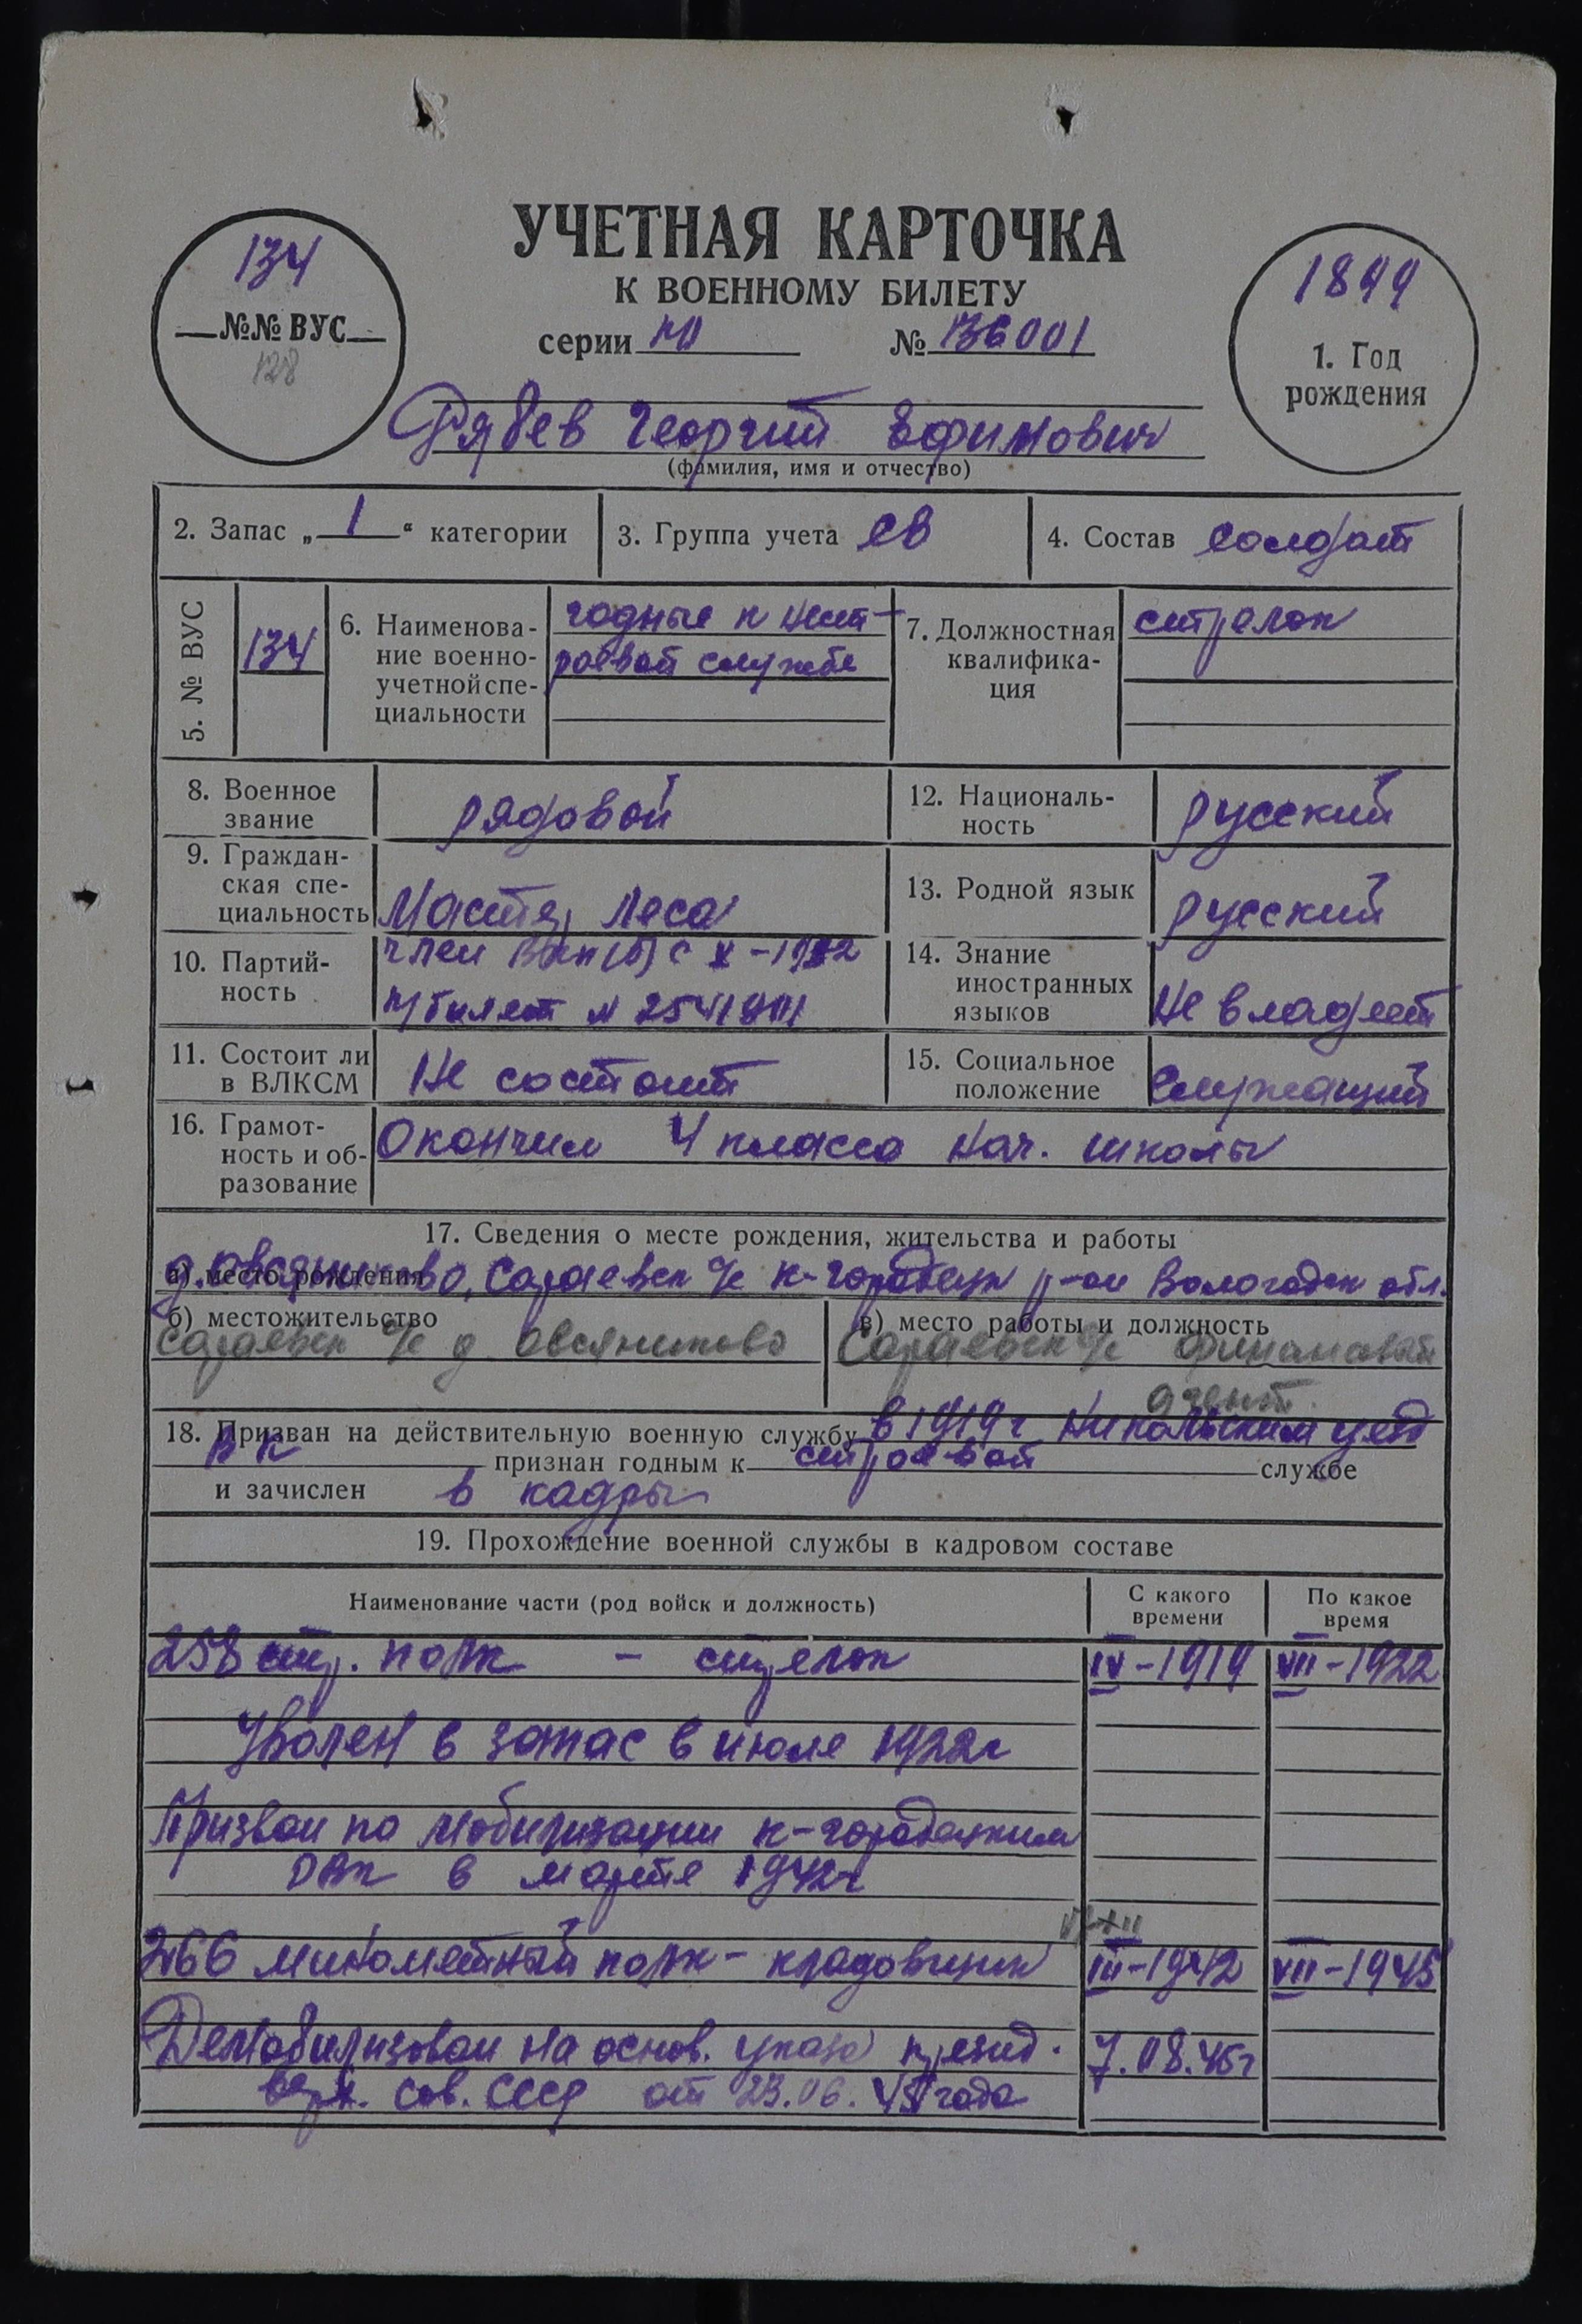 УЧЕТНАЯ КАРТОЧКА
К ВОЕННОМУ БИЛЕТУ
серии НО № 136001
134
№№ ВУС
128
1899
1. Год
рождения
Рябев Георгий Ефимович
(фамилия, имя и отчество)
2. Запас „ 1 “ категории
3. Группа учета СВ
4. Состав солдат
5. № ВУС
134
6. Наименова-
ние военно-
учетной спе-
циальности
годные к нест-
роевой службе
7. Должностная
квалифика-
ция
стрелок
8. Военное
звание
рядовой
12. Националь-
ность
русский
9. Граждан-
ская спе-
циальность
Мастер леса
13. Родной язык
русский
10. Партий-
ность
член ВКП(б) с X-1942
п/билет №
14. Знание
иностранных
языков
Не владеет
11. Состоит ли
в ВЛКСМ
Не состоит
15. Социальное
положение
Служащий
16. Грамот-
ность и об-
разование
Окончил 4 класса нач. школы
17. Сведения о месте рождения, жительства и работы
а) место рождения
д. Овсяниково, Сараевск с/с К-Городецк р-он Вологодск обл.
б) местожительство
Сараевск с/с д Овсяниково
в) место работы и должность
Сараевск с/с финансовый
агент.
18. Призван на действительную военную службу в 1919 г Никольским уезд
ВК признан годным к строевой службе
и зачислен в кадры
19. Прохождение военной службы в кадровом составе
Наименование части (род войск и должность)
С какого
времени
По какое
время
258 стр. полк - стрелок IV-1919 VII-1922
Уволен в запас в июле 1922г
Призван по мобилизации К-Городецким
РВК в марте 1942г
266 минометный полк - кладовщик III-1942 VII-1945
Демобилизован на основ. указа презид. 7.08.45г
верх. Сов. СССР от 23.06.45 года